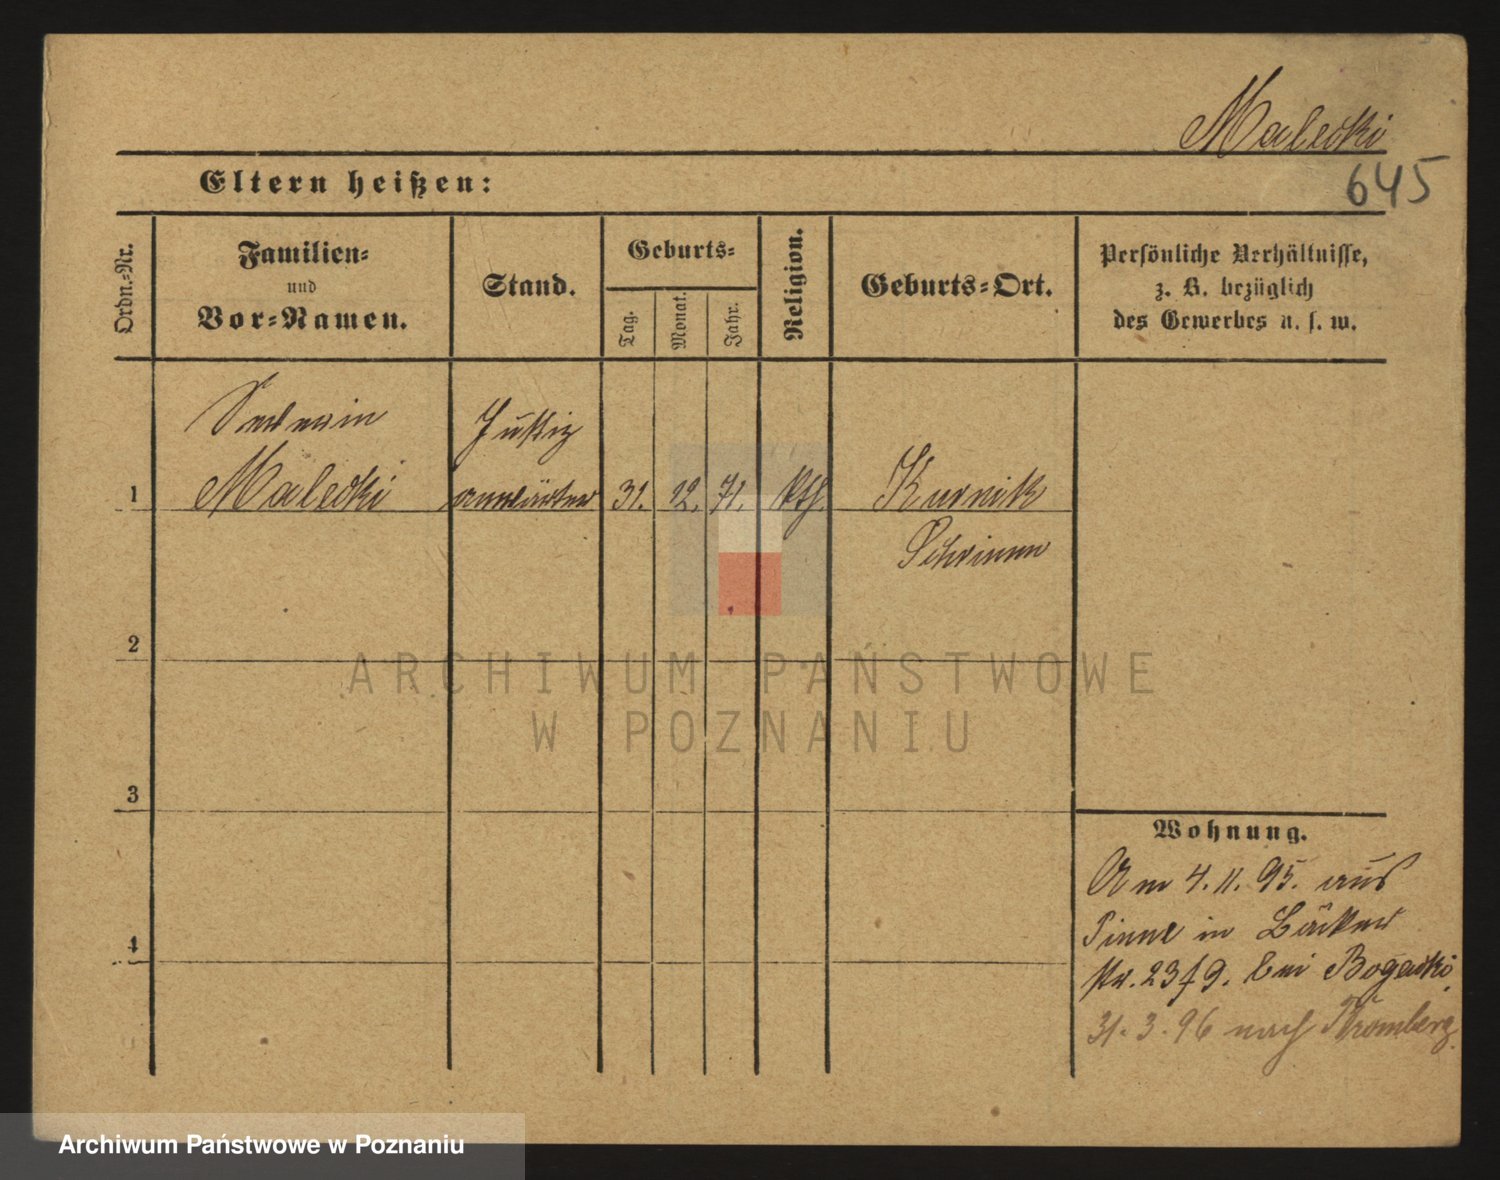 Malecki
645
Eltern heißen:
Ordn.-Nr.
Familien-
und
Vor-Namen.
Stand.
Geburts-
Tag.
Monat.
Jahr.
Religion.
Geburts-Ort.
Persönliche Verhältnisse,
z. B. bezüglich
des Gewerbes u. s. w.
Severin
Justiz
1
Malecki
anwärter
31.
12.
71.
kth.
Kurnik
Schrimm
2
ARCHIWUM PAŃSTWOWE
W POZNANIU
3
Wohnung.
Am 4. 11. 95. aus
Pinne in Bäcker
4
str. 23 f 9. bei Bogacki.
31. 3. 96 nach Bromberg.
Archiwum Państwowe w Poznaniu